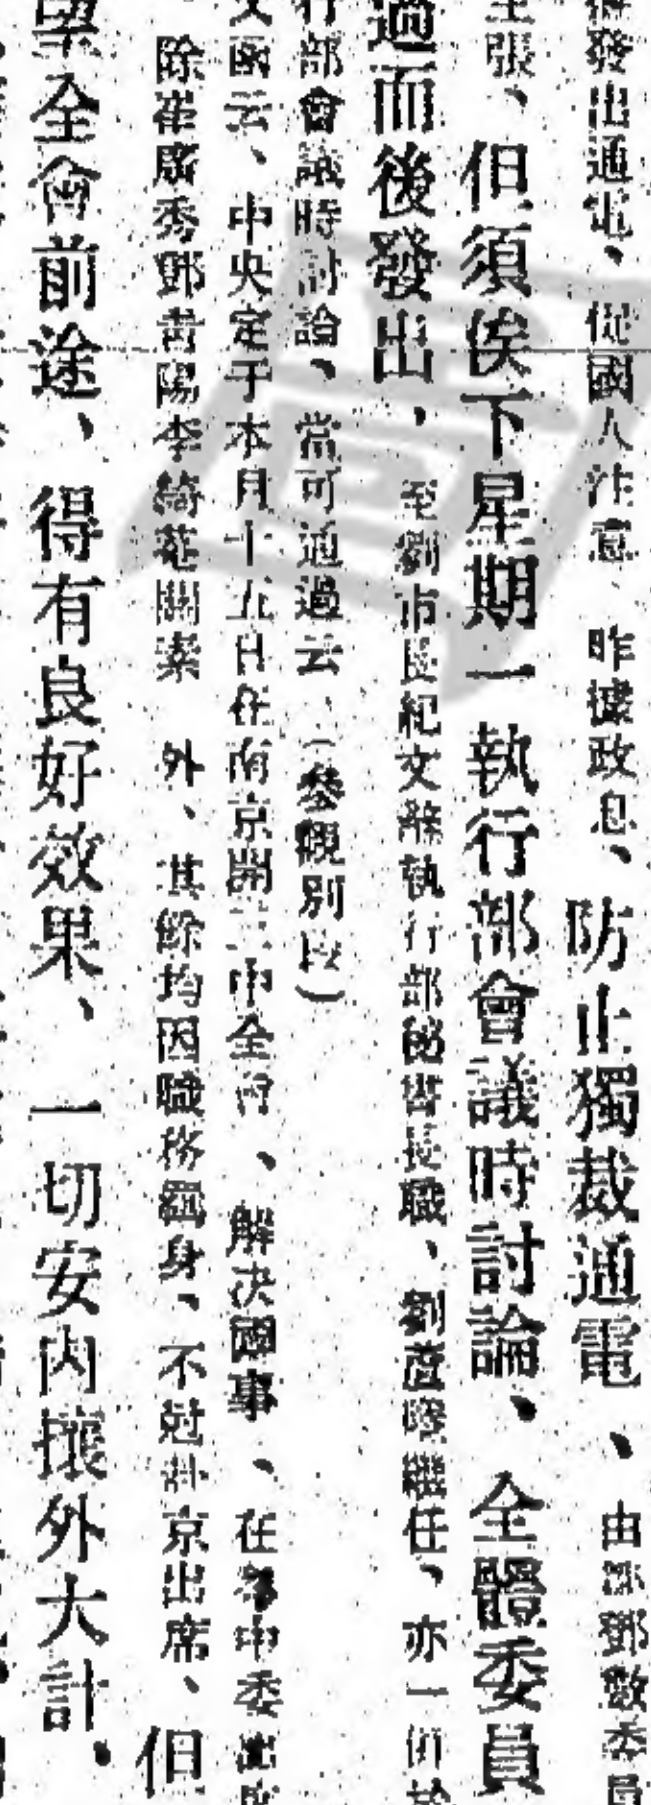 發出通電、促國人注意、昨據政息、防止獨裁通電、由鄧數委員
主張、但須俟下星期一執行部會議時討論、全體委員
過而後發出、至劉市長紀文辭執行部秘書長職、劉蘆隱繼任、亦一併於
行部會議時討論、當可通過云、（參觀別段）
文函云、中央定于本月十五日在南京開三中全會、解決國事、在粵中委
除崔廣秀鄧青陽李綺菴關素 外、其餘均因職務羈身、不克赴京出席、但
望全會前途、得有良好效果、一切安內攘外大計、